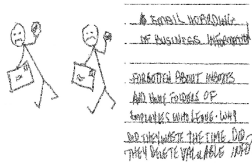 & EMAIL HOARDING
OF BUSINESS INFORMATION
FORGOTTEN ABOUT INBOXES
AND HOME FOLDERS OF
EMPLOYEES WHO LEAVE. WHY
DID THEY WASTE THE TIME. DID
THEY DELETE VALUABLE INFO